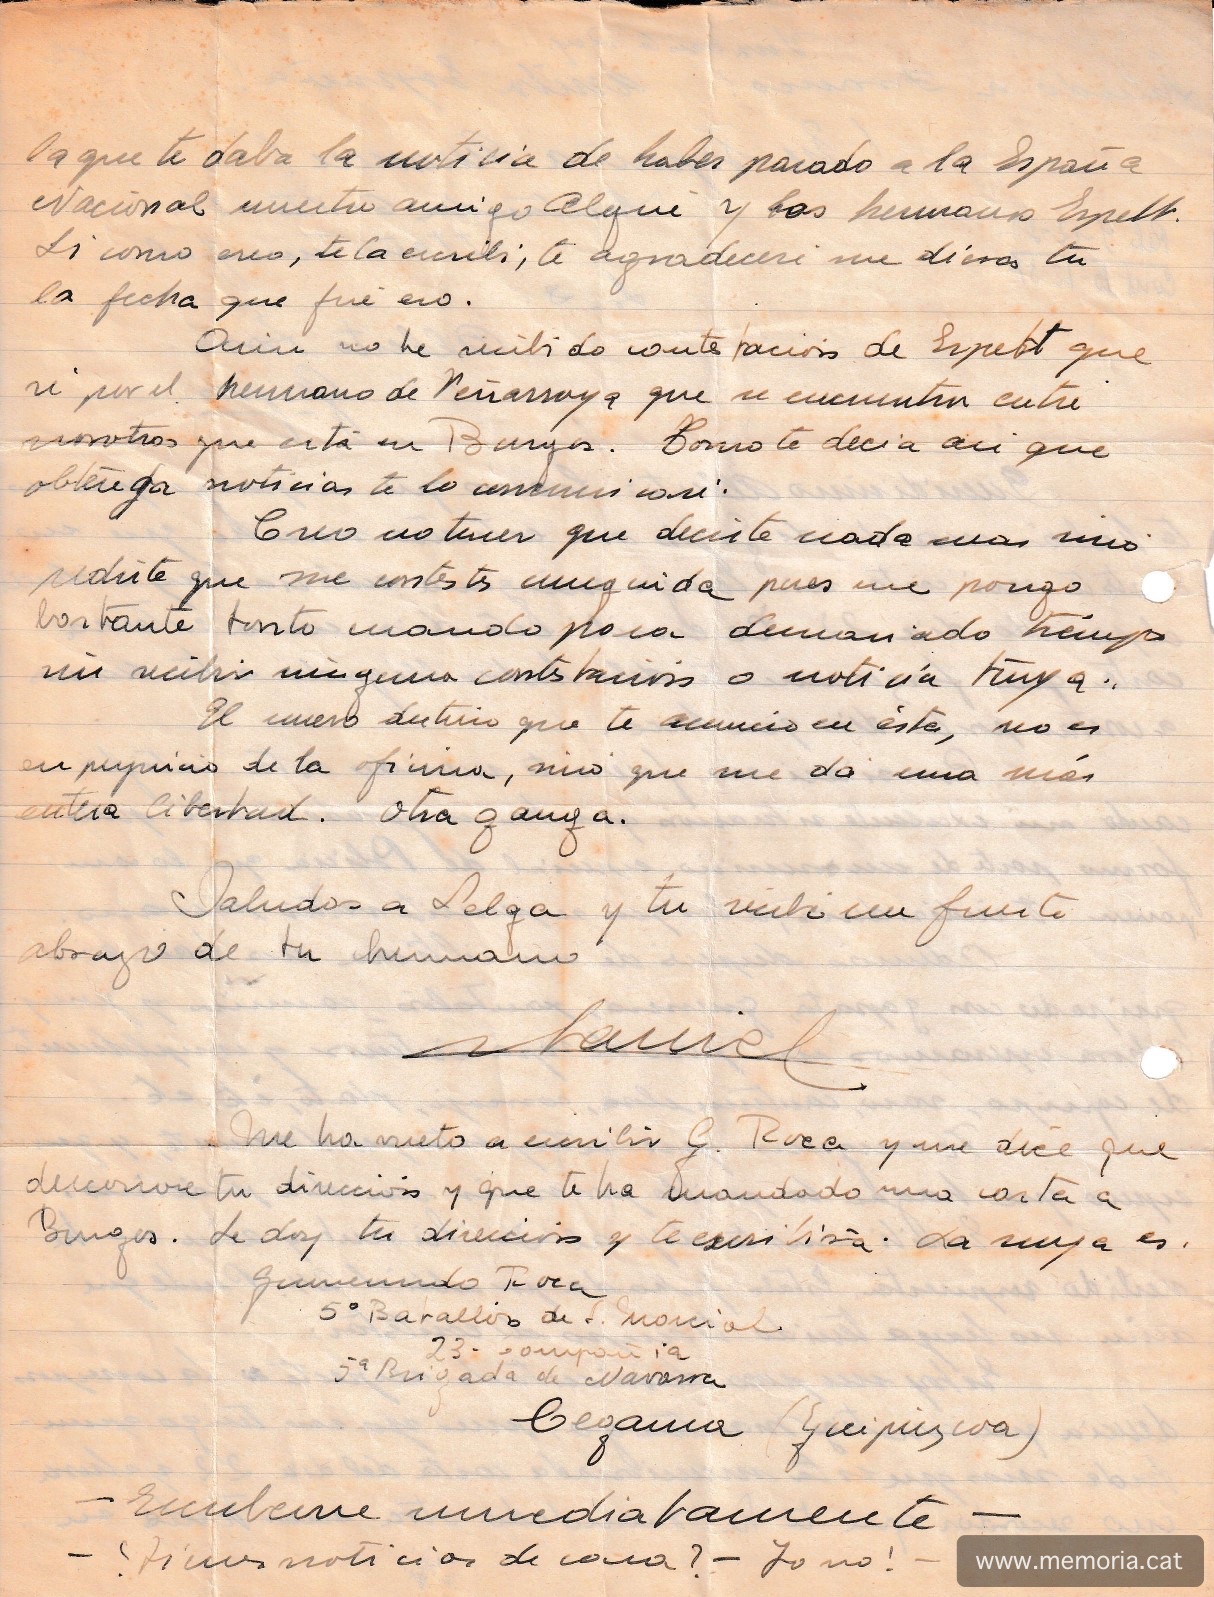 la que te daba la noticia de haber pasado a la España
Nacional nuestro amigo Alqué y los hermanos Espelt.
Si como creo, te la escribí, te agradeceré me dieras tu
la fecha que fué eso.
Aun no he recibido contestación de Espelt que
sé por el hermano de Peñarroya que se encuentra entre
nosotros que está en Burgos. Como te decia asi que
obtenga noticias te lo comunicaré.
Creo no tener que decirte nada mas sino
pedirte que me contestes enseguida pues me pongo
bastante tonto cuando pasa demasiado tiempo
sin recibir ninguna contestación o noticia tuya.
El nuevo destino que te anuncio en ésta, no es
en perjuicio de la oficina, sino que me da una más
entera libertad. Otra ganga.
Saludos a Selga y tu recibe un fuerte
abrazo de tu hermano
Daniel
Me ha vuelto a escribir G. Roca y me dice que
desconoce tu dirección y que te ha mandado una carta a
Burgos. Le doy tu dirección y te escribirá. La suya es.
Gumersindo Roca
5º Batallón de S. Marcial
23ª compañia
5ª Brigada de Navarra
Cegama (Guipúzcoa)
- Escríbeme inmediatamente -
- ¿Tienes noticias de casa? - Yo no! -
www.memoria.cat